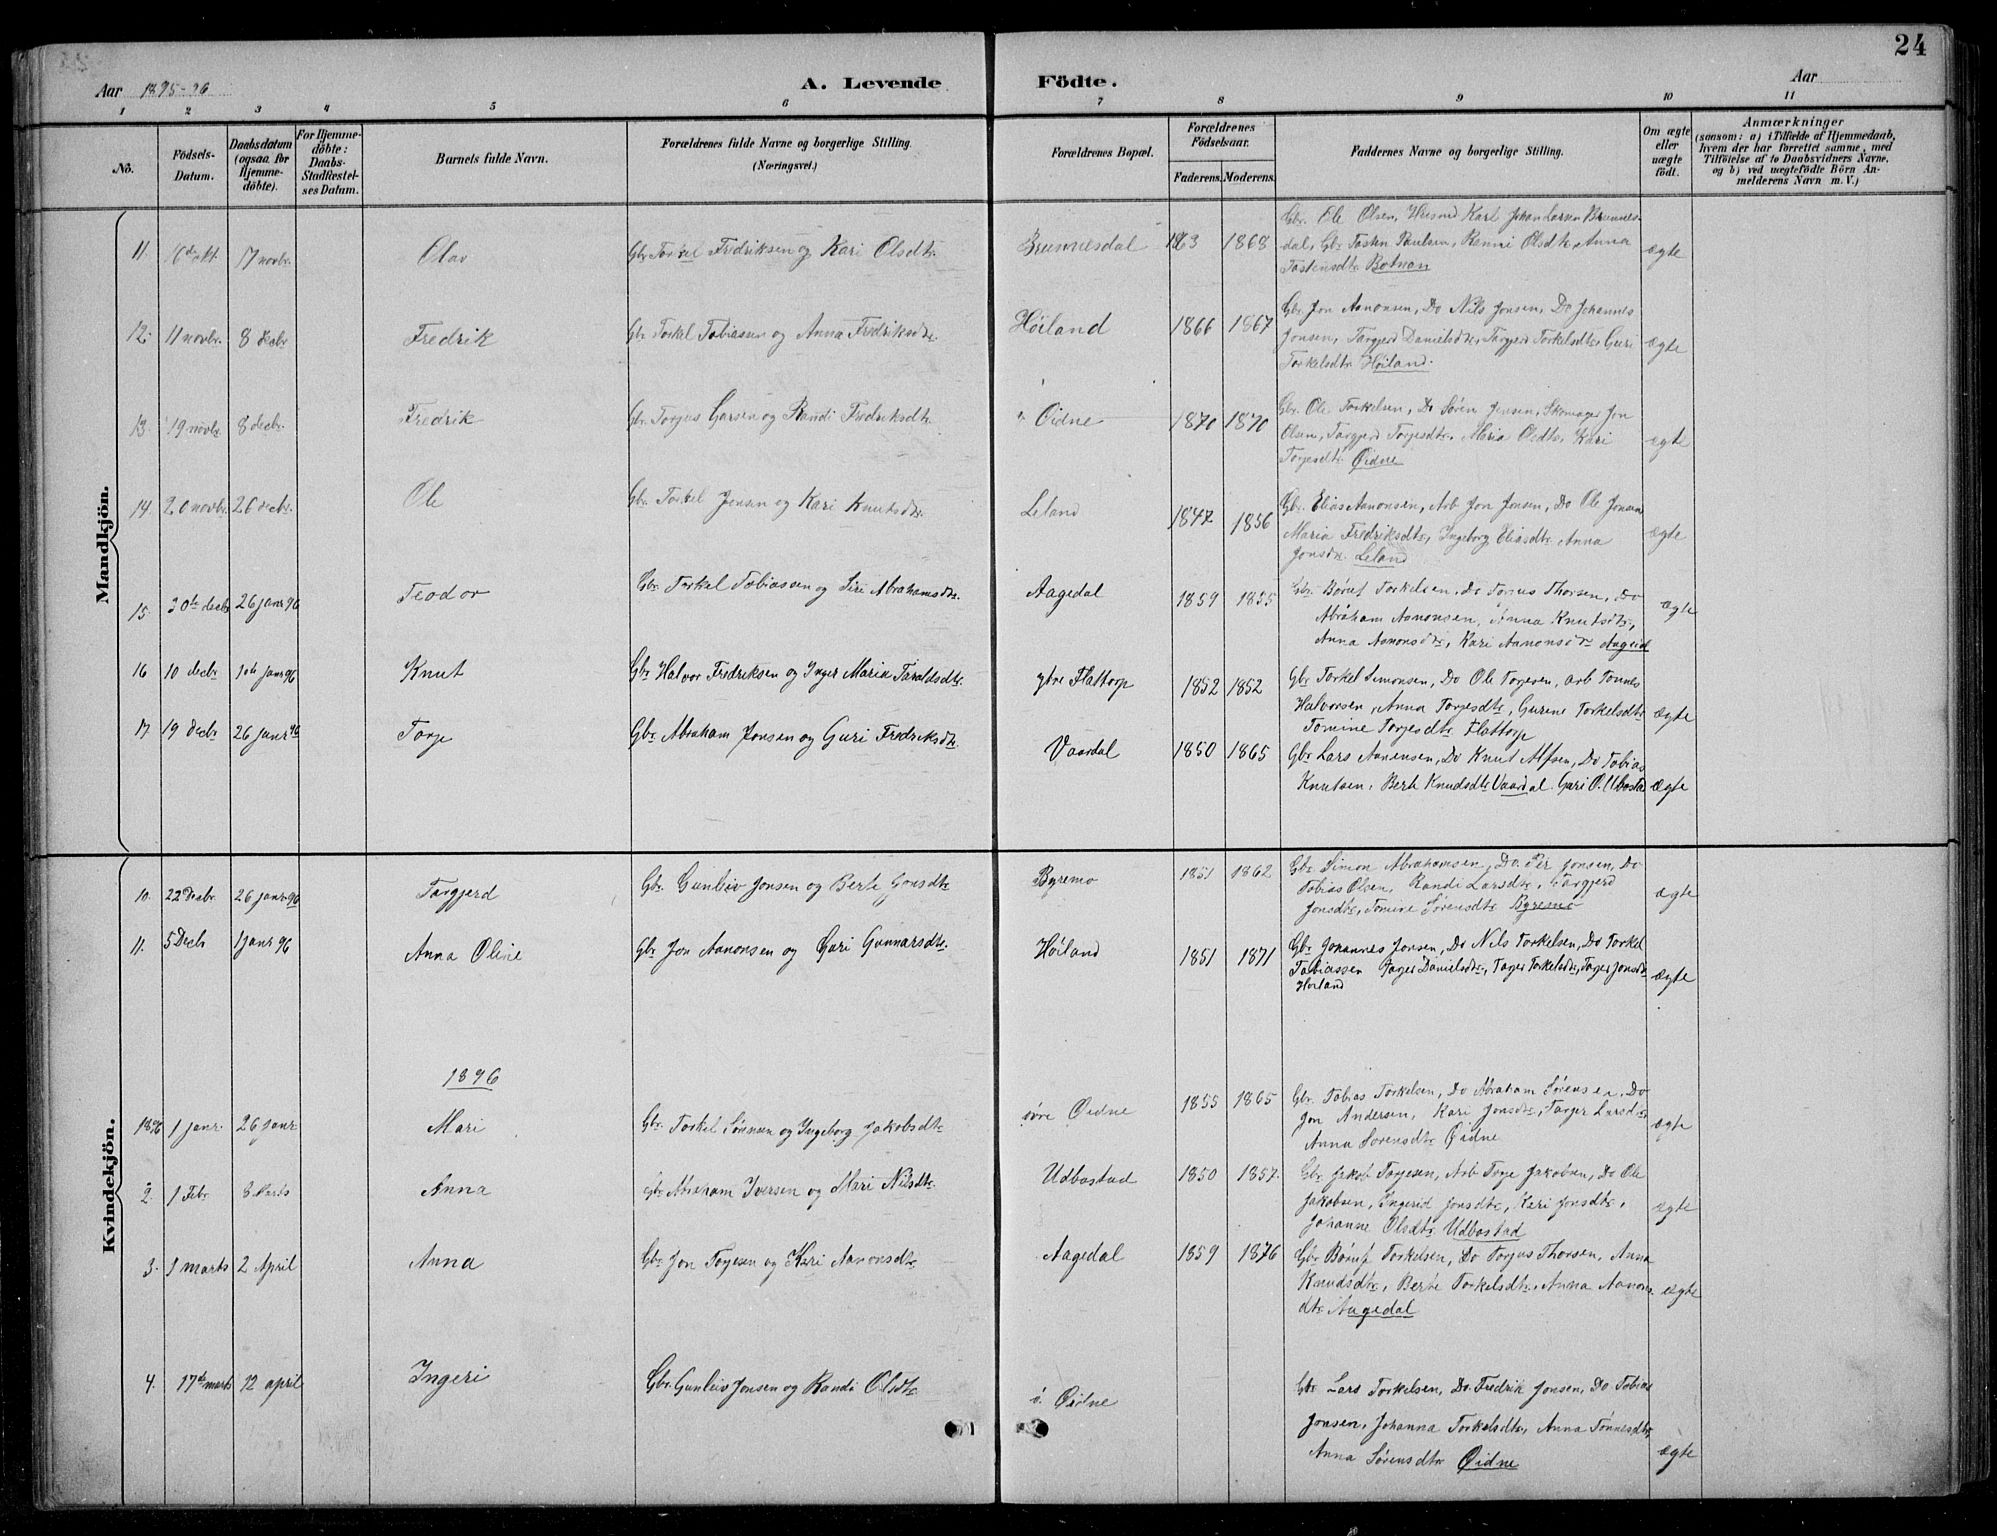 24
Aar 1895-96
A. Levende Födte.
Aar
1 2 3 4 5 6 7 8 9 10 11
No.
Födsels-Datum.
Daabsdatum (ogsaa for Hjemmedöbte).
For Hjemmedöbte: Daabs-Stadfæstelses Datum.
Barnets fulde Navn.
Forældrenes fulde Navne og borgerlige Stilling. (Næringsvei.)
Forældrenes Bopæl.
Forældrenes Födselsaar.
Faderens. Moderens.
Faddernes Navne og borgerlige Stilling.
Om ægte eller uægte födt.
Anmærkninger
(saasom: a) i Tilfælde af Hjemmedaab, hvem der har forrettet samme, med Tilföielse af to Daabsvidners Navne, og b) ved uægtefödte Börn Anmelderens Navn m. V.)
Mandkjön.
11. 17 novbr. Olav Gbr Torkel Fredriksen og Kari Olsdtr. Brunnesdal 1863 1868 Gbr. Ole Olsen, Husmd Karl Johan Larsen Brunnes-
dal, Gbr Tosten Paulsen, Renni Olsdtr, Anna
Tostensdtr. Botnan ægte
12. 11 novbr. 8 decbr Fredrik Gbr Torkel Tobiasen og Anna Fredriksdtr. Höiland 1866 1867 Gbr. Jon Aanonsen, Do Nils Jonsen, Do Johannes
Jonsen, Targjerd Danielsdtr, Targjerd Torkelsdtr, Guri
Torkelsdtr. Höiland. ægte
13. 19 novbr 8 decbr. Fredrik Gbr. Torjus Larsen og Randi Fredriksdtr. i Öidne 1870 1870 Gbr. Ole Torkelsen, Do Sören Jensen, Skomager Jon
Olsen, Targjerd Torjesdtr, Maria Olsdtr, Kari
Torjesdtr. Öidne ægte
14. 20 novbr. 26 decbr. Ole Gbr. Torkel Jensen og Kari Knutsdtr. Leland 1847 1856 Gbr. Elias Aanonsen, Arb Jon Jonsen, Do Ole Jonsen
Maria Fredriksdtr, Ingeborg Eliasdtr. Anna
Jonsdtr. Leland ægte
15 30te decbr 26 janr 96 Teodor Gbr. Torkel Tobiassen og Siri Abrahamsdtr. Aagedal 1859 1855 Gbr. Böruf Torkelsen, Do Torjus Thorsen, Do
Abraham Aanonsen, Anna Knutsdtr,
Anna Aanonsdtr, Kari Aanonsdtr Aagedal ægte
16 10 decbr janr 96 Knut Gbr Halvor Fredriksen og Inger Maria Taraldsdtr. ytre Flattorp 1852 1852 Gbr Torkel Simonsen, Do Ole Torjesen, Arb Tönnes
Halvorsen, Anna Torjesdtr, Gurine Torkelsdtr
Tomine Torjesdtr Flattorp ægte
17. 19 decbr 26 janr 96 Torje Gbr. Abraham Jonsen og Guri Fredriksdtr. Vaardal 1850 1865 Gbr Lars Aanensen, Do Knut Alfsen, Do Tobias
Knutsen, Berte Knudsdtr Vaardal. Guri O. Ubostad ægte
Kvindekjön.
10. 22 Decbr 26 janr 96 Targjerd Gbr. Gunleiv Jonsen og Berte Jonsdtr Byremo 1851 1862 Gbr. Simon Abrahamsen, Do. Per Jonsen, Do
Tobias Olsen, Randi Larsdtr, Targjerd
Jonsdtr, Tomine Sörensdtr Byremo ægte
11. 5 Decbr 1 janr 96 Anna Oline Gbr Jon Aanonsen og Guri Gunnarsdtr. Höiland 1851 1871 Gbr Johannes Jonsen, Do Nils Torkelsen, Do Torkel
Tobiassen Targer Danielsdtr, Targer Torkelsdtr, Targer Jonsdtr
Höiland ægte
1896
1896 1 janr. 26 Janr Mari Gbr. Torkel Sörensen og Ingeborg Jakobsdtr söre Öidne 1855 1865 Gbr. Tobias Torkelsen, Do Abraham Sörensen, Do
Jon Andersen, Kari Jonsdtr, Targer Larsdtr,
Anna Sorensdtr. Öidne ægte
2. 1 Febr 8 Marts Anna Gbr Abraham Iversen og Mari Nilsdtr. Udbostad 1850 1857. Gbr. Jakob Torjesen, Arb Torje Jakobsen, Do Ole
Jakobsen, Ingerid Jonsdtr, Kari Jonsdtr,
Johanne Olsdtr. Udbostad ægte
3. 1 marts 2 April Anna Gbr Jon Torjesen og Kari Aanonsdtr Aagedal 1859 1876 Gbr. Böruf Torkelsen, Do Torjus Thorsen, Anna
Knudsdtr, Berte Torkelsdtr, Anna Aanons
dtr Aagedal ægte
4. 17de marts 12 april Ingeri Gbr. Gunleiv Jonsen og Randi Olsdtr i. Öidne Gbr. Lars Torkelsen, Do. Fredrik Jonsen, Do Tobias
Jonsen, Johanna Torkelsdtr, Anna Tönnesdtr,
Anna Sörensdtr Öidne ægte